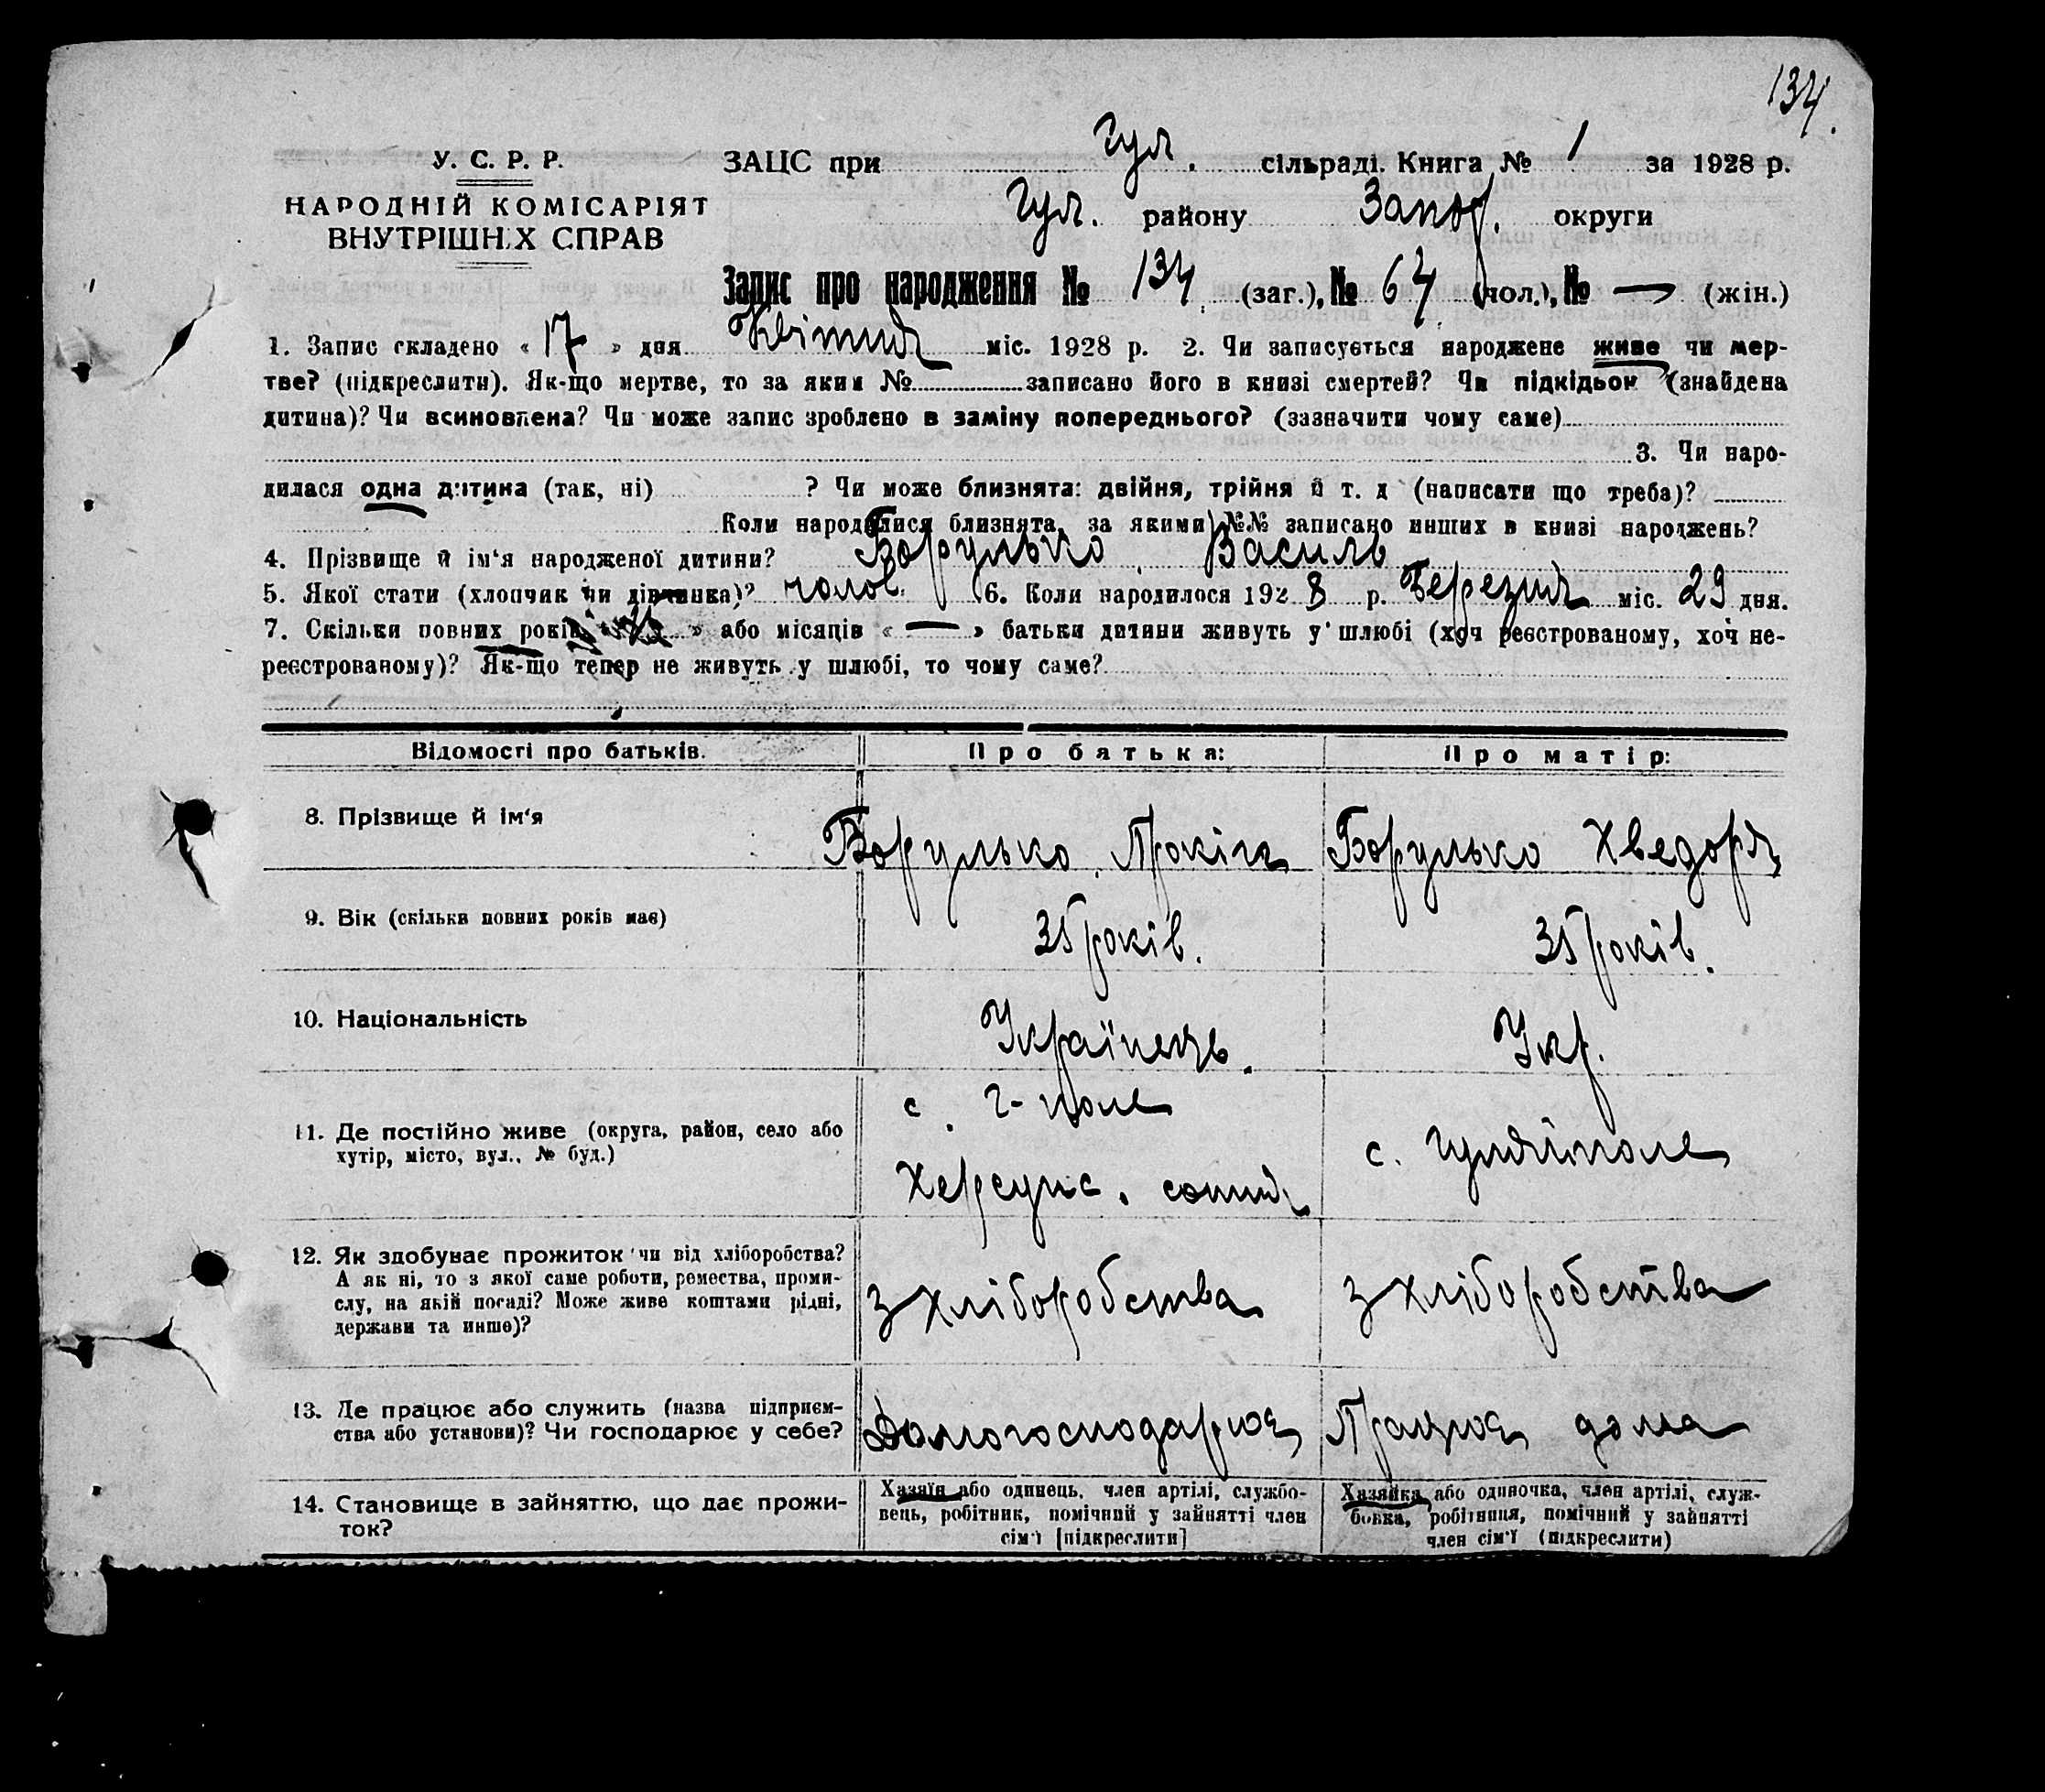 134.
У. С. Р. Р.
НАРОДНІЙ КОМІСАРІЯТ
ВНУТРІШНІХ СПРАВ
ЗАЦС при Гул. сільраді. Книга № 1 за 1928 р.
Гул. району Запор. округи
Запис про народження № 134 (заг.), № 64 (чол.), № — (жін.)
1. Запис складено « 17 » дня Квітня міс. 1928 р. 2. Чи записується народжене живе чи мер-
тве? (підкреслити). Як-що мертве, то за яким № записано його в книзі смертей? Чи підкідьок (знайдена
дитина)? Чи всиновлена? Чи може запис зроблено в заміну попереднього? (зазначити чому саме)
3. Чи наро-
дилася одна дитина (так, ні) ? Чи може близнята: двійня, трійня й т. д (написати що треба)?
Коли народилися близнята, за якими №№ записано инших в книзі народжень?
4. Прізвище й ім'я народженої дитини? Борулько Василь
5. Якої стати (хлопчик чи дівчинка)? чолов. 6. Коли народилося 1928 р. Березня міс. 29 дня.
7. Скільки повних років « » або місяців « — » батьки дитини живуть у шлюбі (хоч реєстрованому, хоч не-
реєстрованому)? Як-що тепер не живуть у шлюбі, то чому саме?
Відомості про батьків. Про батька: Про матір:
8. Прізвище й ім'я Борулько Прокіп Борулько Хведора
9. Вік (скільки повних років має) 35 років. 35 років.
10. Національність Українець. Укр.
11. Де постійно живе (округа, район, село або
хутір, місто, вул., № буд.)
с. Г-поле
Херсунс. сотня
с. Гуляйполе
12. Як здобуває прожиток чи від хліборобства?
А як ні, то з якої саме роботи, ремества, проми-
слу, на якій посаді? Може живе коштами рідні,
держави та инше)?
з хліборобства з хліборобства
13. Де працює або служить (назва підприєм-
ства або установи)? Чи господарює у себе?
Домогосподарює Працює дома
14. Становище в зайняттю, що дає прожи-
ток?
Хазяїн або одинець, член артілі, службо-
вець, робітник, помічний у зайнятті член
сім'ї [підкреслити]
Хазяйка або одиночка, член артілі, служ-
бовка, робітниця, помічний у зайнятті
член сім'ї (підкреслити)